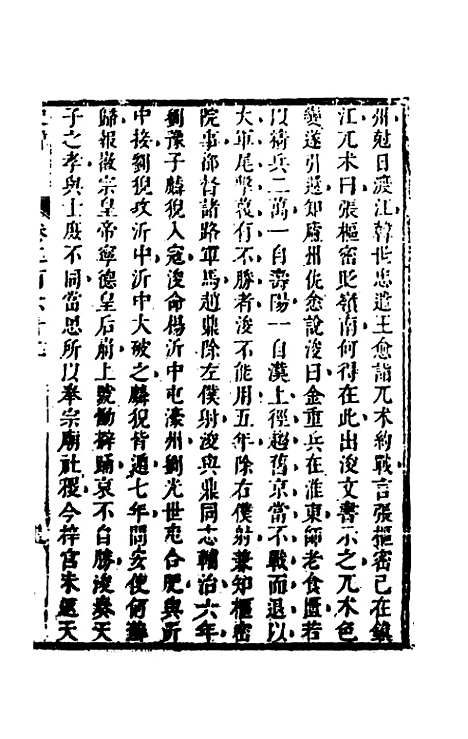 州尅日渡江韓世忠遣王愈詣兀朮約戰言張樞密已在鎮
江兀朮曰張樞密貶嶺南何得在此出浚文書示之兀朮色
變遂引還知廬州仇悆說浚曰金重兵在淮東師老食匱若
以衛兵二萬一自壽陽一自漢上徑趨舊京當不戰而退以
大軍尾擊蔑有不勝者浚不能用五年除右僕射兼知樞密
院事都督諸路軍馬趙鼎除左僕射浚與鼎同志輔治六年
劉豫子麟猊入寇浚命楊沂中屯濠州劉光世屯合肥與沂
中接劉猊攻沂中沂中大破之麟猊皆遁七年問安使何蘚
歸報徽宗皇帝寧德皇后崩上號慟擗踊哀不自勝浚奏天
子之孝與士庶不同當思所以奉宗廟社稷今梓宮未還天